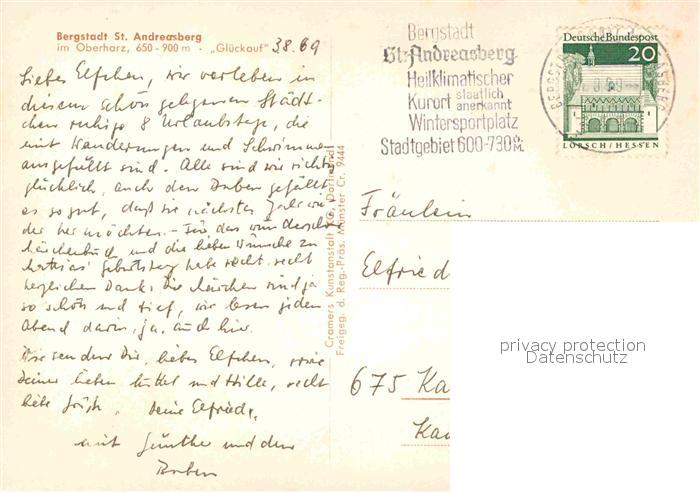 Bergstadt St. Andreasberg
im Oberharz, 650-900 m · „Glückauf"
3.8.69
Liebes Elfchen, wir verleben in
diesem schön gelegenen Städt-
chen ruhige 8 Urlaubstage, die
mit Wanderungen und Schwimmen
ausgefüllt sind. Alle sind wir richtig
glücklich, auch den Buben gefällt
es so gut, daß sie nächstes Jahr wie-
der her möchten. – Für das wunderschöne
Märchenbuch und die lieben Wünsche zu
Geburtstag habe recht, recht
herzlichen Dank. Die Märchen sind ja
so schön und tief, wir lesen jeden
Abend darin, ja, auch hier.
Wir senden Dir, liebes Elfchen, sowie
Deiner lieben Mutter und Hille, recht
liebe Grüße. Deine Elfriede,
mit Günther und den
Buben
Cramers Kunstanstalt KG, Dortmund
Freigeg. d. Reg.-Präs. Münster Cr. 9444
Bergstadt
St. Andreasberg
Heilklimatischer
Kurort staatlich
anerkannt
Wintersportplatz
Stadtgebiet 600-730 m
Deutsche Bundespost
20
LORSCH/HESSEN
Fräulein
Elfried
675 Ka
Ka
privacy protection
Datenschutz